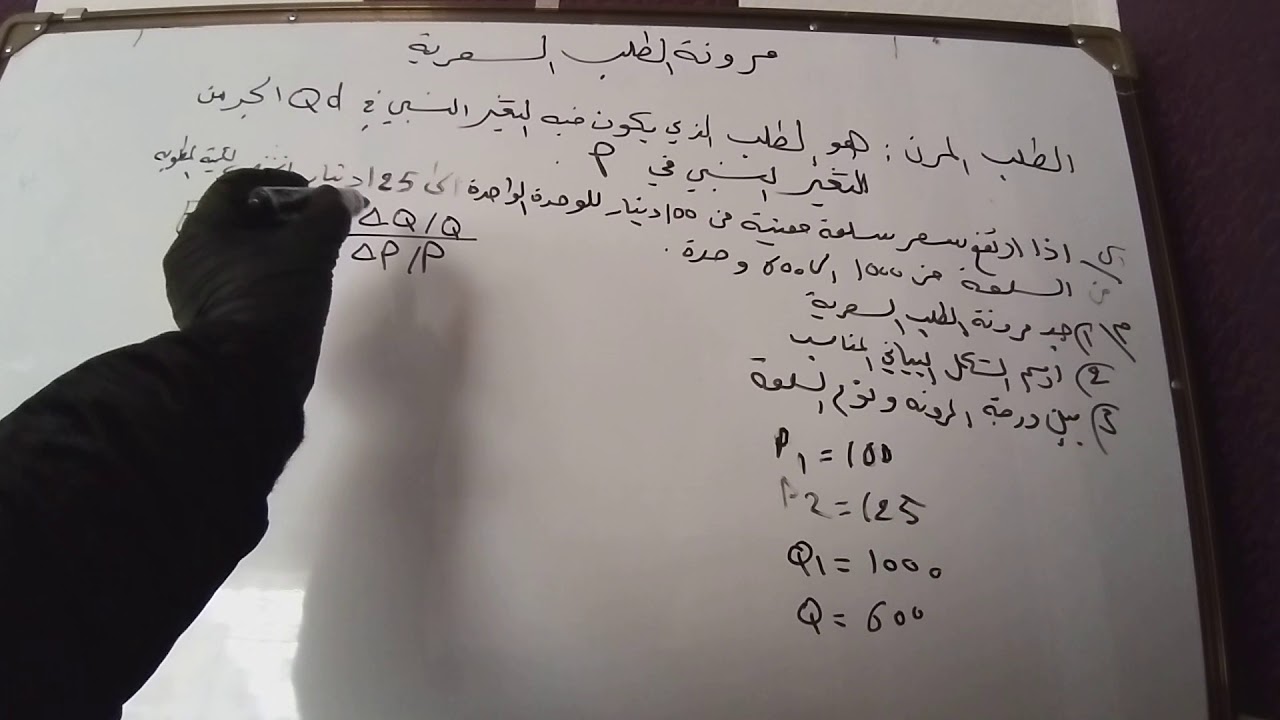 مرونة الطلب السعرية
الطلب المرن : هو الطلب الذي يكون فيه التغير النسبي في Qd اكبر من
التغير النسبي في P .
اذا ارتفع سعر سلعة معينة من 100 دينار للوحدة الواحدة الى 125 دينار الكمية المطلوبه
السلعة من 1000 الى 600 وحدة .
م/ 1) جد مرونة الطلب السعرية
2) ارسم الشكل البياني المناسب
3) بين درجة المرونه ونوع السلعة
ΔQ/Q
ΔP/P
P1 = 100
P2 = 125
Q1 = 1000
Q = 600